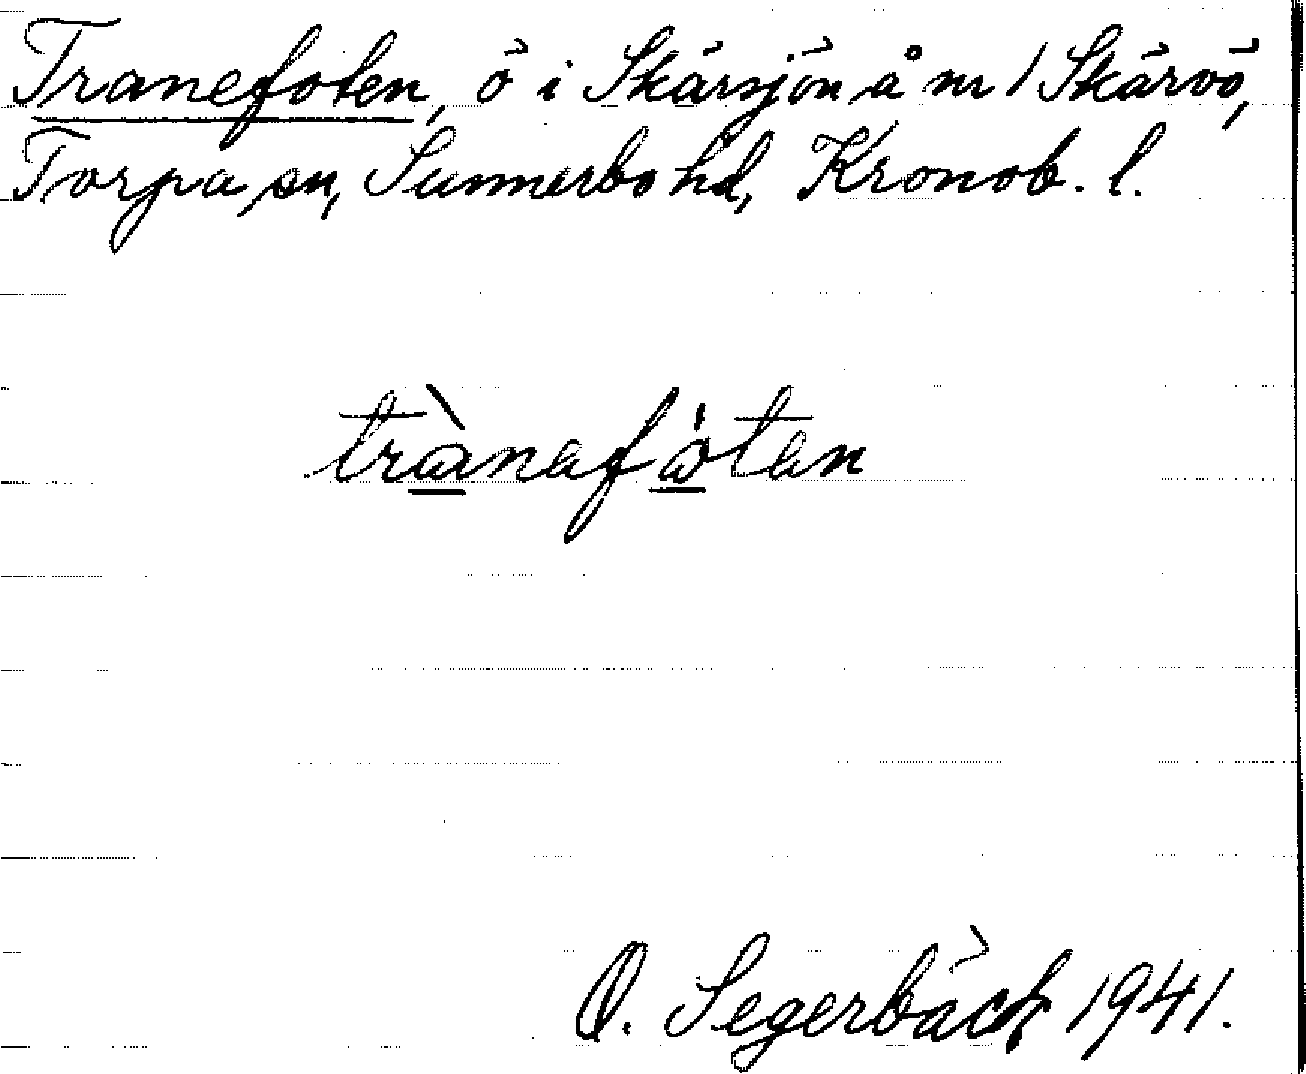 Tranefoten, ö i Skärsjön å nr 1 Skärvö,
Torpa sn, Sunnerbo hd, Kronob. l.
trànafòtan
O. Segerbäck 1941.